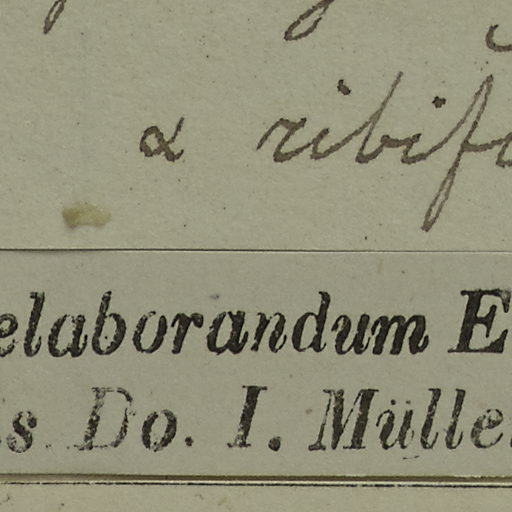 α ribifo
elaborandum E
s Do. I. Mülle